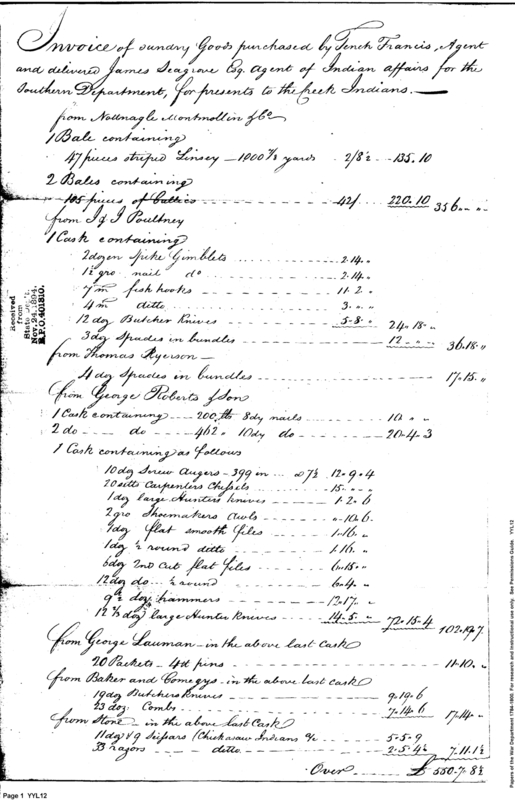 Invoice of sundry Goods purchased by Tench Francis, Agent
and delivered James Seagrove Esq. Agent of Indian affairs for the
Southern Department, for presents to the Creek Indians.—
from Nottnagle Montmollin & Co
1 Bale containing
47 pieces striped Linsey — 1000 ⅔ yards 2/8½ .. 135.10
2 Bales containing
105 pieces of Callico 42/ 220.10 356 .. ..
from J & J Poultney
1 Cask containing
2 dozen Spike Gimblets 2.14 ..
1½ gro nail do 2.14 ..
7 m fish hooks 11.2 ..
4 m ditto 3 .. ..
12 dog Butcher Knives 5.8 .. 24.18 ..
3 dog Spades in bundles 12 .. .. 36.18 ..
from Thomas Ryerson —
4 dog Spades in bundles 17.15 ..
from George Roberts & Son
1 Cask containing — 200 lb 8dy nails 10 .. ..
2 do — do — 462 .. 10dy do 20.4.3
1 Cask containing as follows
10 dog Screw Augers — 399 in .. @ 7½ 12.9.4
20 setts Carpenters Chissels 15 .. ..
1 dog large Hunters Knives 1.2.6
2 gro Shoemakers Awls ...10.6
1 dog flat smooth files 1.16 ..
1 dog ½ round ditto 1.16 ..
6 dog 2nd Cut flat files 6.15 ..
12 dog do ... ½ round 6.4 ..
9½ dog hammers 12.17 ..
12 ⅔ dog large Hunter Knives 14.5 .. 72.15.4 102.19.7
from George Lauman — in the above last Cask
20 Packets — 4d pins 11.10 ..
from Baker and Comegys — in the above last cask
19 dog Butchers Knives 9.19.6
23 dog Combs 7.14.6 17.14 ..
from Stone in the above last Cask
11 dog & 9 Scissars (Chickasaw Indians 5.5.9
33 razors ditto 2.5.4½ 7.11.1½
Over £ 550.7.8½
Received
from
State Dep't.
Nov. 24, 1894.
R.P.O. 401810.
Papers of the War Department 1784-1800. For research and instructional use only. See Permissions Guide YYL12
Page 1 YYL12